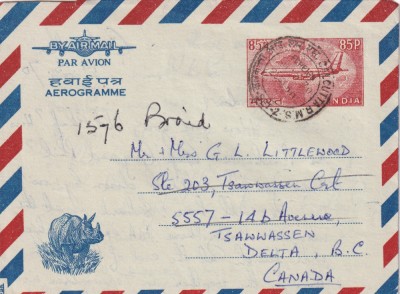 BY AIR MAIL
PAR AVION
हवाई पत्र
AEROGRAMME
85 85P
INDIA
CALCUTTA R.M.S.
1596 Braid
Mr & Mrs G. L. LITTLEWOOD
Ste 203, Tsawwassen Crt
5557-14b Avenue,
TSAWWASSEN
DELTA, B.C.
CANADA